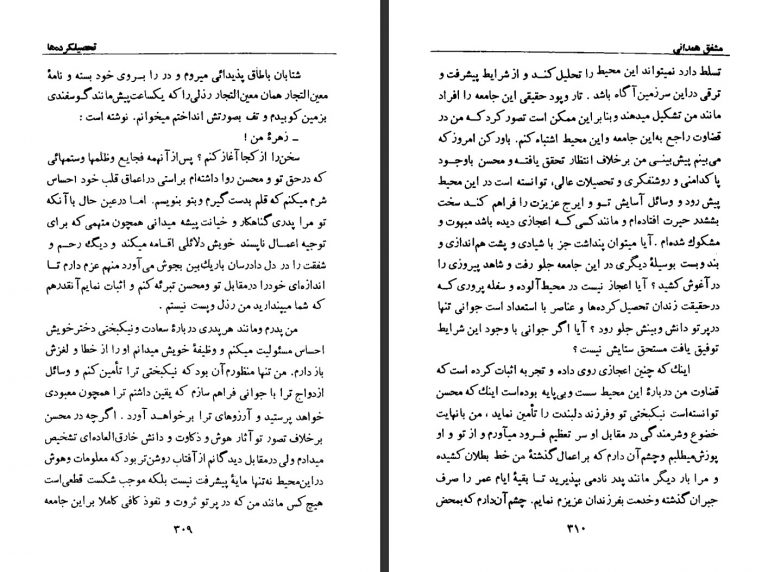 تحصیلکرده‌ها
شتابان باطاق پذیدائی میروم و در را بروی خود بسته و نامهٔ
معین‌التجار همان معین‌التجار رذلی را که یکساعت‌پیش مانند گوسفندی
بزمین کوبیدم و تف بصورتش انداختم میخوانم. نوشته است :
ــ زهرهٔ من !
سخن‌را ازکجا آغاز کنم ؟ پس‌از آنهمه فجایع وظلمها وستمهائی
که درحق تو و محسن روا داشته‌ام براستی دراعماق قلب خود احساس
شرم میکنم که قلم بدست گیرم وبتو بنویسم. اما درعین حال با آنکه
تو مرا پدری گناهکار و خیانت پیشه میدانی همچون متهمی که برای
توجیه اعمال ناپسند خویش دلائلی اقامه میکند و دیگ رحم و
شفقت را در دل دادرسان باریك‌بین بجوش می‌آورد منهم عزم دارم تا
اندازه‌ای خودرا درمقابل تو ومحسن تبرئه کنم و اثبات نمایم آنقدرهم
که شما میپندارید من رذل وپست نیستم .
من پدرم ومانند هرپدری دربارهٔ سعادت ونیکبختی دخترخویش
احساس مسئولیت میکنم و وظیفهٔ خویش میدانم او را از خطا و لغزش
باز دارم. من تنها منظورم آن بود که نیکبختی ترا تأمین کنم و وسائل
ازدواج ترا با جوانی فراهم سازم که یقین داشتم ترا همچون معبودی
خواهد پرستید و آرزوهای ترا برخواهد آورد . اگرچه در محسن
برخلاف تصور تو آثار هوش و ذکاوت و دانش خارق‌العاده‌ای تشخیص
میدادم ولی درمقابل دیدگانم از آفتاب روشن‌تر بود که معلومات وهوش
دراین‌محیط نه‌تنها مایهٔ پیشرفت نیست بلکه موجب شکست قطعی‌است
هیچ‌کس مانند من که در پرتو ثروت و نفوذ کافی کاملا براین جامعه
۳۰۹
مشفق همدانی
تسلط دارد نمیتواند این محیط را تحلیل کند و از شرایط پیشرفت و
ترقی دراین سرزمین آگاه باشد . تار وپود حقیقی این جامعه را افراد
مانند من تشکیل میدهند وبنابراین ممکن است تصور کرد که من در
قضاوت راجع به‌این جامعه واین محیط اشتباه کنم. باور کن امروز که
می‌بینم پیش‌بینی من برخلاف انتظار تحقق یافته و محسن باوجود
پاکدامنی و روشنفکری و تحصیلات عالی، توانسته است در این محیط
پیش رود و وسائل آسایش تو و ایرج عزیزت را فراهم کند سخت
بششدر حیرت افتاده‌ام و مانند کسی که اعجازی دیده باشد مبهوت و
مشکوك شده‌ام. آیا میتوان پنداشت جز با شیادی و پشت هم‌اندازی و
بند وبست بوسیلهٔ دیگری در این جامعه جلو رفت و شاهد پیروزی را
درآغوش کشید ؟ آیا اعجاز نیست در محیط‌آلوده و سفله پروری که
درحقیقت زندان تحصیل کرده‌ها و عناصر با استعداد است جوانی تنها
درپرتو دانش وبینش جلو رود ؟ آیا اگر جوانی با وجود این شرایط
توفیق یافت مستحق ستایش نیست ؟
اینك که چنین اعجازی روی داده و تجربه اثبات کرده است که
قضاوت من دربارهٔ این محیط سست وبی‌پایه بوده است اینك که محسن
توانسته‌است نیکبختی تو وفرزند دلبندت را تأمین نماید ، من بانهایت
خضوع وشرمندگی در مقابل او سر تعظیم فرود میآورم و از تو و او
پوزش‌میطلبم وچشم‌آن دارم که براعمال گذشتهٔ من خط بطلان کشیده
و مرا بار دیگر مانند پدر نادمی بپذیرید تا بقیهٔ ایام عمر را صرف
جبران گذشته وخدمت بفرزندان عزیزم نمایم. چشم‌آن‌دارم که بمحض
۳۱۰